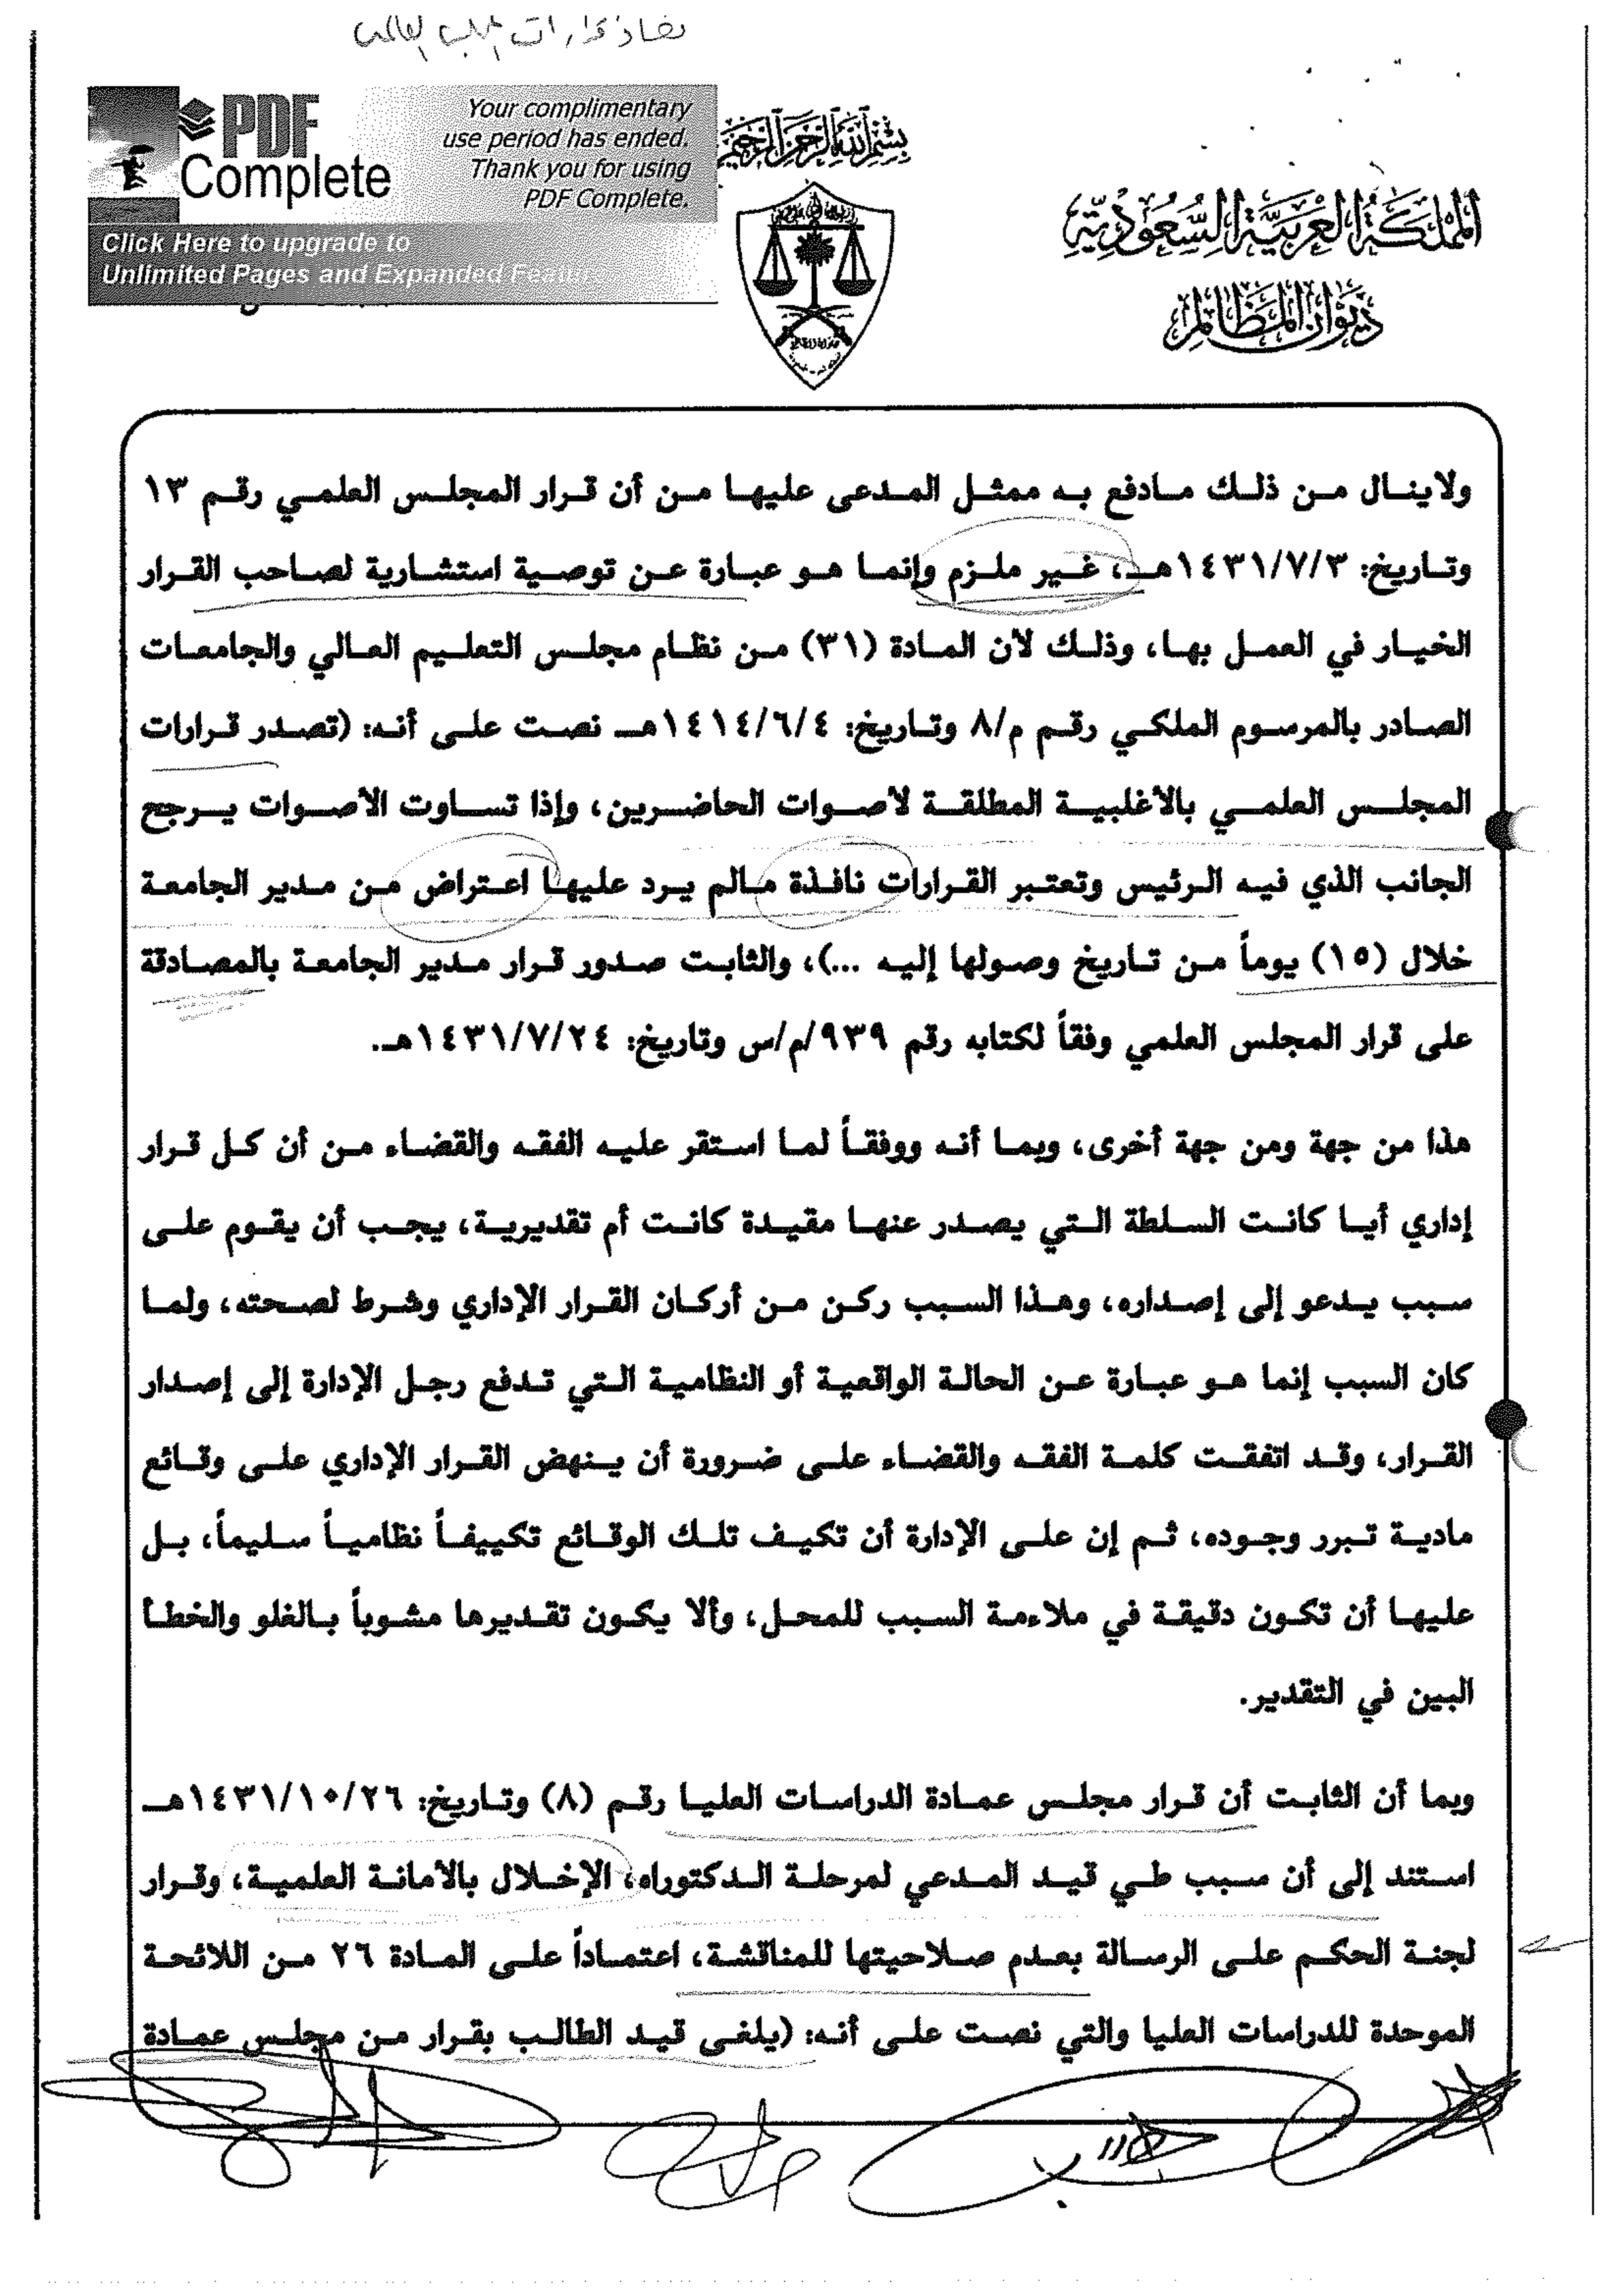 نفاذ قرارات المجلس العلمي
PDF
Complete
Your complimentary
use period has ended.
Thank you for using
PDF Complete.
Click Here to upgrade to
Unlimited Pages and Expanded Features
بسم الله الرحمن الرحيم
المملكة العربية السعودية
ديوان المظالم
ولاينال من ذلك مادفع به ممثل المدعى عليها من أن قرار المجلس العلمي رقم ١٣
وتاريخ: ١٤٣١/٧/٣هـ، غير ملزم وإنما هو عبارة عن توصية استشارية لصاحب القرار
الخيار في العمل بها، وذلك لأن المادة (٣١) من نظام مجلس التعليم العالي والجامعات
الصادر بالمرسوم الملكي رقم م/٨ وتاريخ: ١٤١٤/٦/٤هـ نصت على أنه: (تصدر قرارات
المجلس العلمي بالأغلبية المطلقة لأصوات الحاضرين، وإذا تساوت الأصوات يرجح
الجانب الذي فيه الرئيس وتعتبر القرارات نافذة مالم يرد عليها اعتراض من مدير الجامعة
خلال (١٥) يوماً من تاريخ وصولها إليه ...)، والثابت صدور قرار مدير الجامعة بالمصادقة
على قرار المجلس العلمي وفقاً لكتابه رقم ٩٣٩/م/س وتاريخ: ١٤٣١/٧/٢٤هـ.
هذا من جهة ومن جهة أخرى، وبما أنه ووفقاً لما استقر عليه الفقه والقضاء من أن كل قرار
إداري أيا كانت السلطة التي يصدر عنها مقيدة كانت أم تقديرية، يجب أن يقوم على
سبب يدعو إلى إصداره، وهذا السبب ركن من أركان القرار الإداري وشرط لصحته، ولما
كان السبب إنما هو عبارة عن الحالة الواقعية أو النظامية التي تدفع رجل الإدارة إلى إصدار
القرار، وقد اتفقت كلمة الفقه والقضاء على ضرورة أن ينهض القرار الإداري على وقائع
مادية تبرر وجوده، ثم إن على الإدارة أن تكيف تلك الوقائع تكييفاً نظامياً سليماً، بل
عليها أن تكون دقيقة في ملاءمة السبب للمحل، وألا يكون تقديرها مشوباً بالغلو والخطأ
البين في التقدير.
وبما أن الثابت أن قرار مجلس عمادة الدراسات العليا رقم (٨) وتاريخ: ١٤٣١/١٠/٢٦هـ
استند إلى أن سبب طي قيد المدعي لمرحلة الدكتوراه، الإخلال بالأمانة العلمية، وقرار
لجنة الحكم على الرسالة بعدم صلاحيتها للمناقشة، اعتماداً على المادة ٢٦ من اللائحة
الموحدة للدراسات العليا والتي نصت على أنه: (يلغى قيد الطالب بقرار من مجلس عمادة